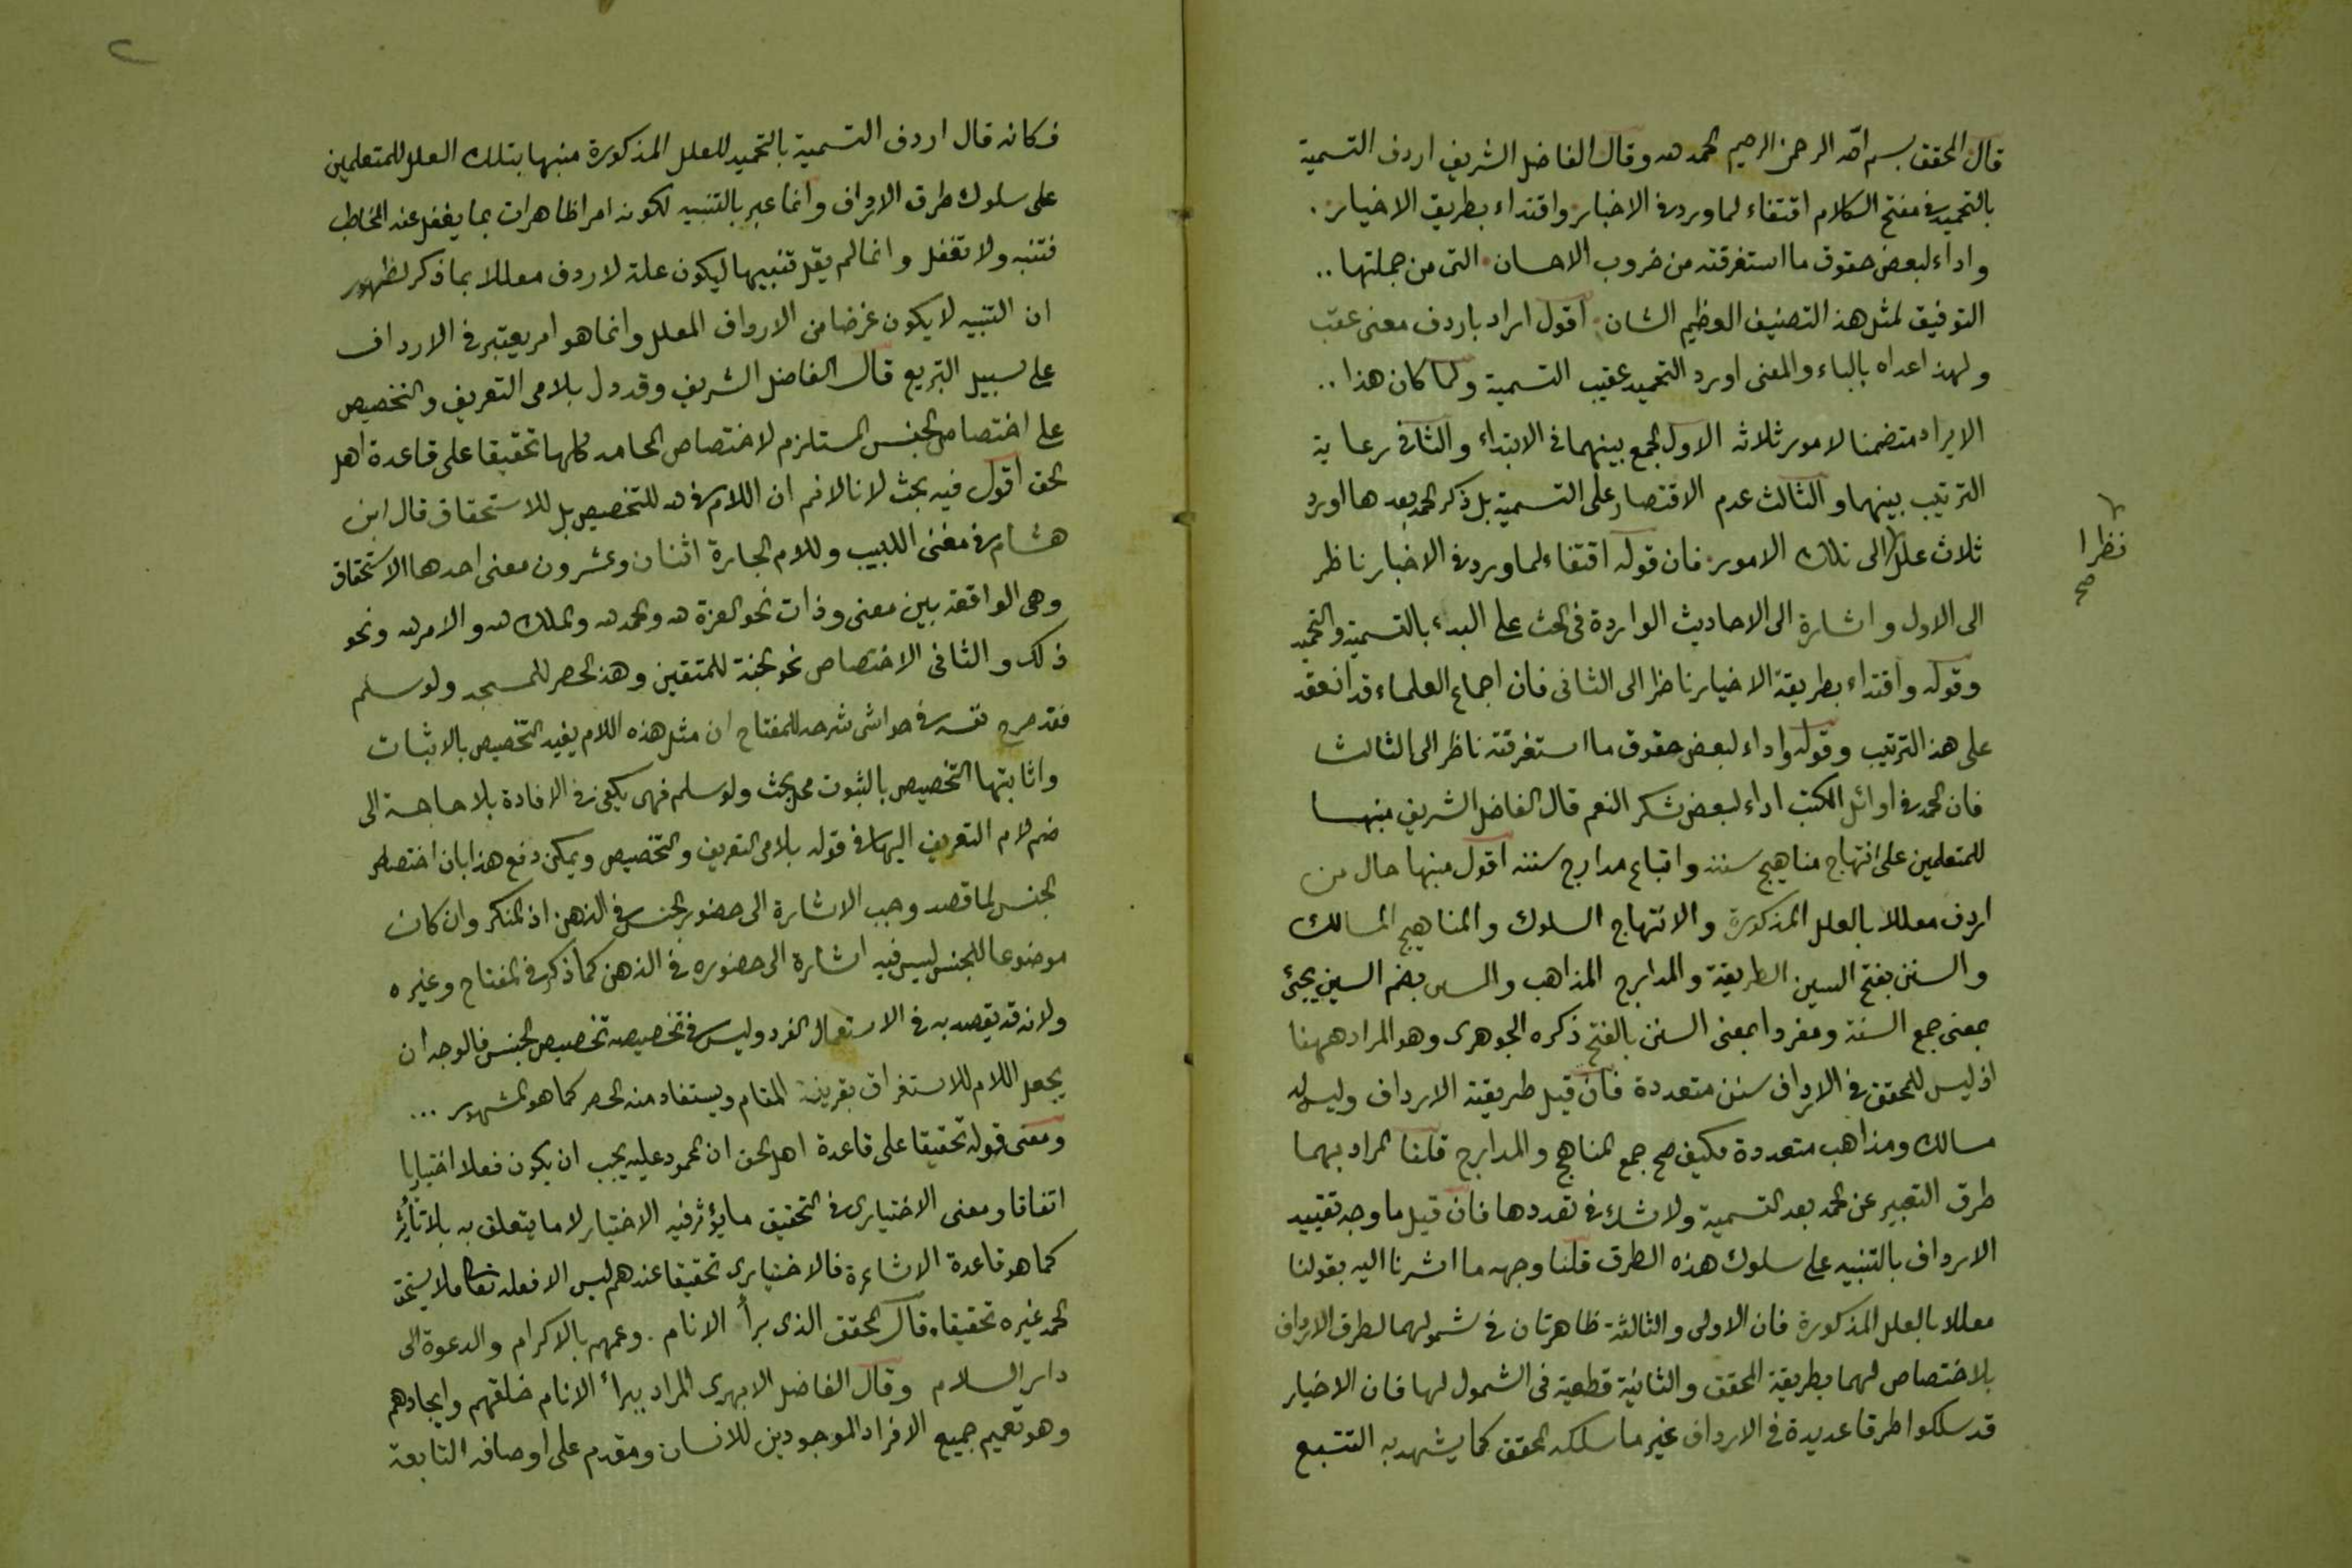 قال المحقق بسم الله الرحمن الرحيم الحمد لله وقال الفاضل الشريف اردف التسمية
بالتحميد في مفتتح الكلام اقتفاء لما ورد في الاخبار واقتداء بطريق الاخيار
واداء لبعض حقوق ما استغرقته من ضروب الاحسان التى من جملتها
التوفيق لمثل هذا التصنيف العظيم الشان اقول اراد باردف معنى عقب
ولهذا عداه بالباء والمعنى اورد التحميد عقيب التسمية ولما كان هذا
الايراد متضمنا لامور ثلاثه الاول الجمع بينهما فى الابتداء والثانى رعاية
الترتيب بينهما والثالث عدم الاقتصار على التسمية بل ذكر الحمد بعدها اورد
ثلاث علل الى تلك الامور فان قوله اقتفاء لما ورد فى الاخبار ناظر
نظرا
صح
الى الاول واشارة الى الاحاديث الواردة فى الحث على البدء بالتسمية والتحميد
وقوله واقتداء بطريقة الاخيار ناظر الى الثانى فان اجماع العلماء قد انعقد
على هذا الترتيب وقوله واداء لبعض حقوق ما استغرقته ناظر الى الثالث
فان الحمد فى اوائل الكتب اداء لبعض شكر النعم قال الفاضل الشريف منبها
للمتعلمين على انتهاج مناهيج سننه واتباع مدارج سننه اقول منبها حال من
اردف معللا بالعلل المذكورة والانتهاج السلوك والمناهيج المسالك
والسنن بفتح السين الطريقة والمدارج المذاهب والسنن بضم السين يجئ
بمعنى جمع السنة ومفردا بمعنى السنن بالفتح ذكره الجوهرى وهو المراد ههنا
اذ ليس للمحقق فى الارداف سنن متعددة فان قيل طريقة الارداف وليس له
مسالك ومذاهب متعددة فكيف صح جمع المناهج والمدارج قلنا المراد بهما
طرق التعبير عن الحمد بعد التسمية ولا شك فى تعددها فان قيل ما وجه تقييد
الارداف بالتنبيه على سلوك هذه الطرق قلنا وجهه ما اشرنا اليه بقولنا
معللا بالعلل المذكورة فان الاولى والثالثة ظاهرتان فى شمولهما لطرق الارداف
بلا اختصاص لهما بطريقة المحقق والثانية قطعية فى الشمول لها فان الاخيار
قد سلكوا طرقا عديدة فى الارداف غير ما سلكه المحقق كما يشهد به التتبع
٢
فكانه قال اردف التسمية بالتحميد للعلل المذكورة منبها بتلك العلل للمتعلمين
على سلوك طرق الارداف وانما عبر بالتنبيه لكونه امرا ظاهرا بما يغفل عنه المخاطب
فتنبه ولا تغفل وانما لم يقل تنبيها ليكون علة لاردف معللا بما ذكر لظهور
ان التنبيه لا يكون غرضا من الارداف المعلل وانما هو امر يعتبر فى الارداف
على سبيل التبريع قال الفاضل الشريف وقد دل بلامى التعريف والتخصيص
على اختصاص الجنس المستلزم لاختصاص المحامد كلها تحقيقا على قاعدة اهل
الحق اقول فيه بحث لانا لا نم ان اللام فى لله للتخصيص بل للاستحقاق قال ابن
هشام فى مغنى اللبيب وللام الجارة اثنان وعشرون معنى احدها الاستحقاق
وهى الواقعة بين معنى وذات نحو العزة لله والحمد لله والملك لله والامر لله ونحو
ذلك والثانى الاختصاص نحو الجنة للمتقين وهذا الحصر للمسجد ولو سلم
فقد صرح نفسه فى حواشى شرحه للمفتاح ان مثل هذه اللام يفيد التخصيص بالاثبات
واثابتها التخصيص بالثبوت محل بحث ولو سلم فهى يكفى فى الافادة بلا حاجة الى
ضم لام التعريف اليها فى قوله بلامى التعريف والتخصيص ويمكن دفع هذا بان اختصاص
الجنس لما قصد وجب الاشارة الى حضور الجنس فى الذهن اذ المنكر وان كان
موضوعا للجنس ليس فيه اشارة الى حضوره فى الذهن كما ذكر فى المفتاح وغيره
ولانه قد يقصد به فى الاستعمال الفرد وليس فى تخصيصه تخصيص الجنس فالوجه ان
يجعل اللام للاستغراق بقرينة المقام ويستفاد منه الحصر كما هو المشهور
ومعنى قوله تحقيقا على قاعدة اهل الحق ان المحمود عليه يجب ان يكون فعلا اختياريا
اتفاقا ومعنى الاختيارى فى التحقيق ما يؤثر فيه الاختيار لا ما يتعلق به بلا تأثير
كما هو قاعدة الاشاعرة فالاختيارى تحقيقا عندهم ليس الا فعله تعالى فلا يستحق
الحمد غيره تحقيقا قال المحقق الذى برأ الانام وعمهم بالاكرام والدعوة الى
دار السلام وقال الفاضل الابهرى المراد ببرأ الانام خلقهم وايجادهم
وهو تعميم جميع الافراد الموجودين للانسان ومقدم على اوصافه التابعة